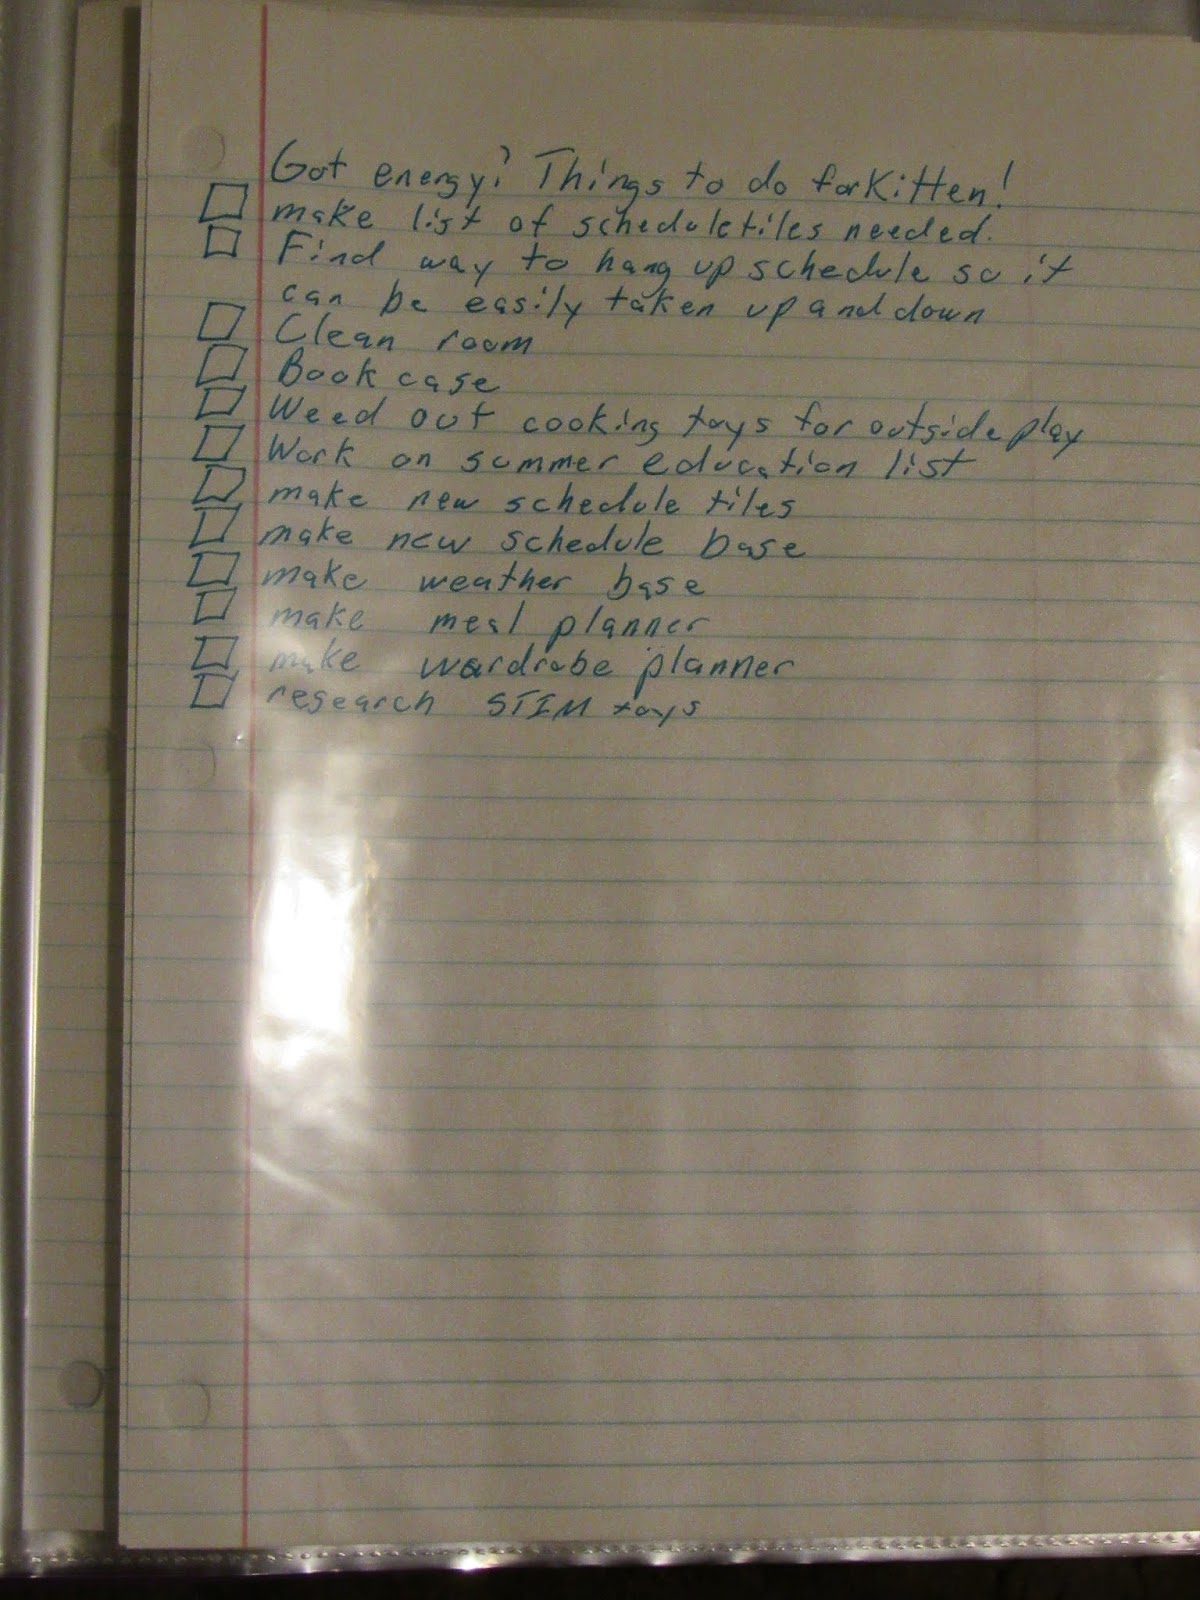 Got energy? Things to do for Kitten!
make list of schedule tiles needed.
Find way to hang up schedule so it
can be easily taken up and down
Clean room
Book case
Weed out cooking toys for outside play
Work on summer education list
make new schedule tiles
make new schedule base
make weather base
make meal planner
make wardrobe planner
research STIM toys